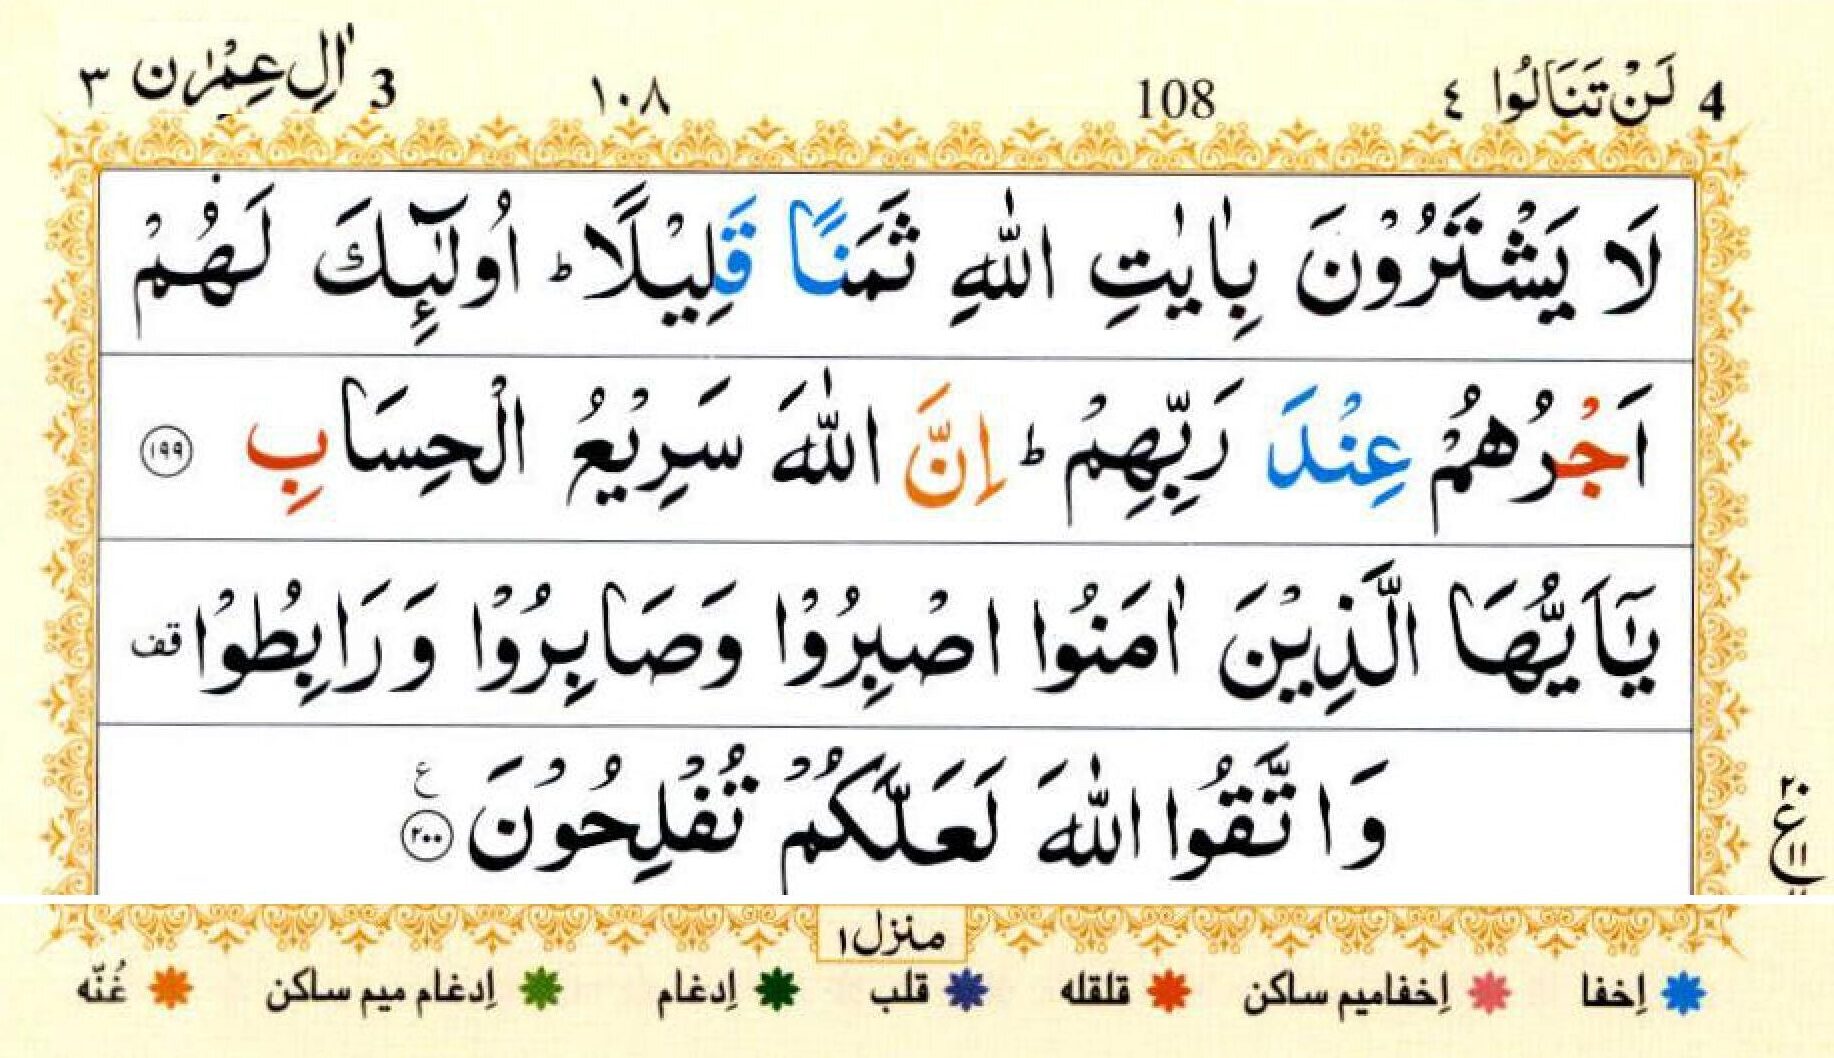 4 لَنْ تَنَالُوا ٤ 108 ١٠٨ 3 اٰلِ عِمْرٰن ٣
لَا يَشْتَرُوْنَ بِاٰيٰتِ اللّٰهِ ثَمَنًا قَلِيْلًا ؕ اُولٰٓئِكَ لَهُمْ
اَجْرُهُمْ عِنْدَ رَبِّهِمْ ؕ اِنَّ اللّٰهَ سَرِيْعُ الْحِسَابِ ١٩٩
يٰٓاَيُّهَا الَّذِيْنَ اٰمَنُوا اصْبِرُوْا وَصَابِرُوْا وَرَابِطُوْا قف
وَاتَّقُوا اللّٰهَ لَعَلَّكُمْ تُفْلِحُوْنَ ٢٠٠ ع
٢٠
ع
١١
منزل ١
إخفا إخفاميم ساكن قلقله قلب إدغام إدغام ميم ساكن غُنّه